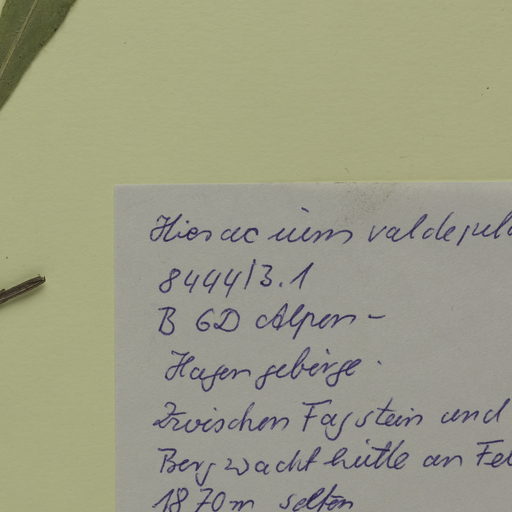 Hieracium valdepilo
8444/3.1
B GD Alpen -
Hagengebirge.
Zwischen Fagstein und
Bergwachthütte an Fel
1870m selten